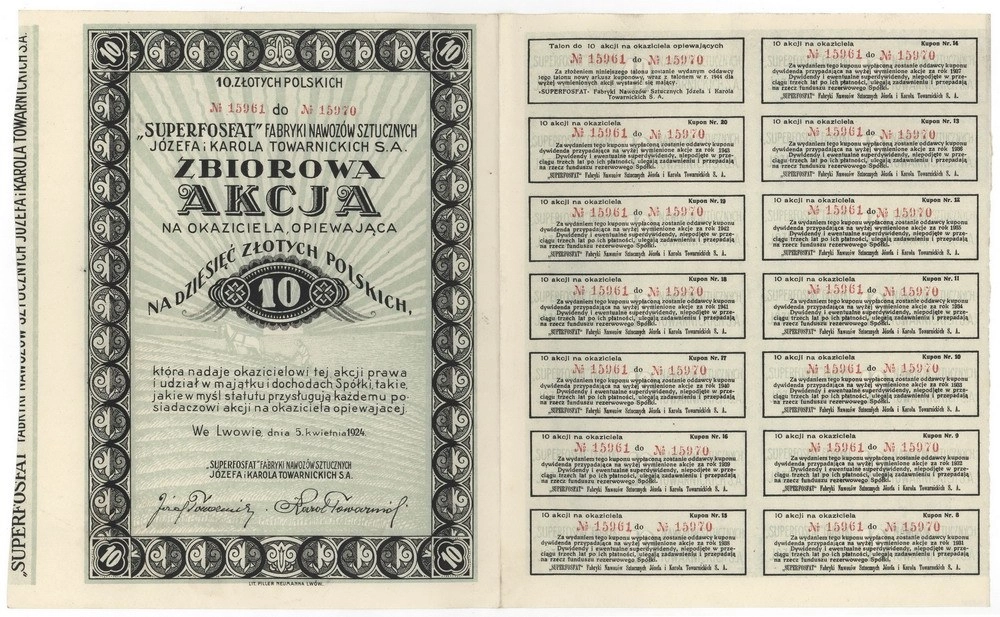 „SUPERFOSFAT" FABRYKI NAWOZÓW SZTUCZNYCH JÓZEFA i KAROLA TOWARNICKICH S.A.
10
10
10. ZŁOTYCH POLSKICH
№ 15961 do № 15970
„SUPERFOSFAT" FABRYKI NAWOZÓW SZTUCZNYCH
JÓZEFA i KAROLA TOWARNICKICH S.A.
ZBIOROWA
AKCJA
NA OKAZICIELA, OPIEWAJĄCA
NA DZIESIĘĆ ZŁOTYCH POLSKICH,
10
która nadaje okazicielowi tej akcji prawa
i udział w majątku i dochodach Spółki, takie,
jakie w myśl statutu przysługują każdemu po-
siadaczowi akcji na okaziciela opiewającej.
We Lwowie, dnia 5. kwietnia 1924.
„SUPERFOSFAT" FABRYKI NAWOZÓW SZTUCZNYCH
JÓZEFA i KAROLA TOWARNICKICH S.A.
Józef Towarnicki Karol Towarnicki
10
10
LIT. PILLER NEUMANNA LWÓW.
Talon do 10 akcji na okaziciela opiewających
№ 15961 do № 15970
Za złożeniem niniejszego talonu zostanie wydanym oddawcy
tego talonu nowy arkusz kuponowy, wraz z talonem w r. 1944 dla
wyżej wymienionych akcji wystawić się mający.
„SUPERFOSFAT" Fabryki Nawozów Sztucznych Józefa i Karola
Towarnickich S. A.
10 akcji na okaziciela Kupon Nr. 20
№ 15961 do № 15970
Za wydaniem tego kuponu wypłaconą zostanie oddawcy kuponu
dywidenda przypadająca na wyżej wymienione akcje za rok 1943
Dywidendy i ewentualne superdywidendy, niepodjęte w prze-
ciągu trzech lat po ich płatności, ulegają zadawnieniu i przepadają
na rzecz funduszu rezerwowego Spółki.
„SUPERFOSFAT" Fabryki Nawozów Sztucznych Józefa i Karola Towarnickich S. A.
10 akcji na okaziciela Kupon Nr. 19
№ 15961 do № 15970
Za wydaniem tego kuponu wypłaconą zostanie oddawcy kuponu
dywidenda przypadająca na wyżej wymienione akcje za rok 1942
Dywidendy i ewentualne superdywidendy, niepodjęte w prze-
ciągu trzech lat po ich płatności, ulegają zadawnieniu i przepadają
na rzecz funduszu rezerwowego Spółki.
„SUPERFOSFAT" Fabryki Nawozów Sztucznych Józefa i Karola Towarnickich S. A.
10 akcji na okaziciela Kupon Nr. 18
№ 15961 do № 15970
Za wydaniem tego kuponu wypłaconą zostanie oddawcy kuponu
dywidenda przypadająca na wyżej wymienione akcje za rok 1941
Dywidendy i ewentualne superdywidendy, niepodjęte w prze-
ciągu trzech lat po ich płatności, ulegają zadawnieniu i przepadają
na rzecz funduszu rezerwowego Spółki.
„SUPERFOSFAT" Fabryki Nawozów Sztucznych Józefa i Karola Towarnickich S. A.
10 akcji na okaziciela Kupon Nr. 17
№ 15961 do № 15970
Za wydaniem tego kuponu wypłaconą zostanie oddawcy kuponu
dywidenda przypadająca na wyżej wymienione akcje za rok 1940
Dywidendy i ewentualne superdywidendy, niepodjęte w prze-
ciągu trzech lat po ich płatności, ulegają zadawnieniu i przepadają
na rzecz funduszu rezerwowego Spółki.
„SUPERFOSFAT" Fabryki Nawozów Sztucznych Józefa i Karola Towarnickich S. A.
10 akcji na okaziciela Kupon Nr. 16
№ 15961 do № 15970
Za wydaniem tego kuponu wypłaconą zostanie oddawcy kuponu
dywidenda przypadająca na wyżej wymienione akcje za rok 1939
Dywidendy i ewentualne superdywidendy, niepodjęte w prze-
ciągu trzech lat po ich płatności, ulegają zadawnieniu i przepadają
na rzecz funduszu rezerwowego Spółki.
„SUPERFOSFAT" Fabryki Nawozów Sztucznych Józefa i Karola Towarnickich S. A.
10 akcji na okaziciela Kupon Nr. 15
№ 15961 do № 15970
Za wydaniem tego kuponu wypłaconą zostanie oddawcy kuponu
dywidenda przypadająca na wyżej wymienione akcje za rok 1938
Dywidendy i ewentualne superdywidendy, niepodjęte w prze-
ciągu trzech lat po ich płatności, ulegają zadawnieniu i przepadają
na rzecz funduszu rezerwowego Spółki.
„SUPERFOSFAT" Fabryki Nawozów Sztucznych Józefa i Karola Towarnickich S. A.
10 akcji na okaziciela Kupon Nr. 14
№ 15961 do № 15970
Za wydaniem tego kuponu wypłaconą zostanie oddawcy kuponu
dywidenda przypadająca na wyżej wymienione akcje za rok 1937
Dywidendy i ewentualne superdywidendy, niepodjęte w prze-
ciągu trzech lat po ich płatności, ulegają zadawnieniu i przepadają
na rzecz funduszu rezerwowego Spółki.
„SUPERFOSFAT" Fabryki Nawozów Sztucznych Józefa i Karola Towarnickich S. A.
10 akcji na okaziciela Kupon Nr. 13
№ 15961 do № 15970
Za wydaniem tego kuponu wypłaconą zostanie oddawcy kuponu
dywidenda przypadająca na wyżej wymienione akcje za rok 1936
Dywidendy i ewentualne superdywidendy, niepodjęte w prze-
ciągu trzech lat po ich płatności, ulegają zadawnieniu i przepadają
na rzecz funduszu rezerwowego Spółki.
„SUPERFOSFAT" Fabryki Nawozów Sztucznych Józefa i Karola Towarnickich S. A.
10 akcji na okaziciela Kupon Nr. 12
№ 15961 do № 15970
Za wydaniem tego kuponu wypłaconą zostanie oddawcy kuponu
dywidenda przypadająca na wyżej wymienione akcje za rok 1935
Dywidendy i ewentualne superdywidendy, niepodjęte w prze-
ciągu trzech lat po ich płatności, ulegają zadawnieniu i przepadają
na rzecz funduszu rezerwowego Spółki.
„SUPERFOSFAT" Fabryki Nawozów Sztucznych Józefa i Karola Towarnickich S. A.
10 akcji na okaziciela Kupon Nr. 11
№ 15961 do № 15970
Za wydaniem tego kuponu wypłaconą zostanie oddawcy kuponu
dywidenda przypadająca na wyżej wymienione akcje za rok 1934
Dywidendy i ewentualne superdywidendy, niepodjęte w prze-
ciągu trzech lat po ich płatności, ulegają zadawnieniu i przepadają
na rzecz funduszu rezerwowego Spółki.
„SUPERFOSFAT" Fabryki Nawozów Sztucznych Józefa i Karola Towarnickich S. A.
10 akcji na okaziciela Kupon Nr. 10
№ 15961 do № 15970
Za wydaniem tego kuponu wypłaconą zostanie oddawcy kuponu
dywidenda przypadająca na wyżej wymienione akcje za rok 1933
Dywidendy i ewentualne superdywidendy, niepodjęte w prze-
ciągu trzech lat po ich płatności, ulegają zadawnieniu i przepadają
na rzecz funduszu rezerwowego Spółki.
„SUPERFOSFAT" Fabryki Nawozów Sztucznych Józefa i Karola Towarnickich S. A.
10 akcji na okaziciela Kupon Nr. 9
№ 15961 do № 15970
Za wydaniem tego kuponu wypłaconą zostanie oddawcy kuponu
dywidenda przypadająca na wyżej wymienione akcje za rok 1932
Dywidendy i ewentualne superdywidendy, niepodjęte w prze-
ciągu trzech lat po ich płatności, ulegają zadawnieniu i przepadają
na rzecz funduszu rezerwowego Spółki.
„SUPERFOSFAT" Fabryki Nawozów Sztucznych Józefa i Karola Towarnickich S. A.
10 akcji na okaziciela Kupon Nr. 8
№ 15961 do № 15970
Za wydaniem tego kuponu wypłaconą zostanie oddawcy kuponu
dywidenda przypadająca na wyżej wymienione akcje za rok 1931
Dywidendy i ewentualne superdywidendy, niepodjęte w prze-
ciągu trzech lat po ich płatności, ulegają zadawnieniu i przepadają
na rzecz funduszu rezerwowego Spółki.
„SUPERFOSFAT" Fabryki Nawozów Sztucznych Józefa i Karola Towarnickich S. A.